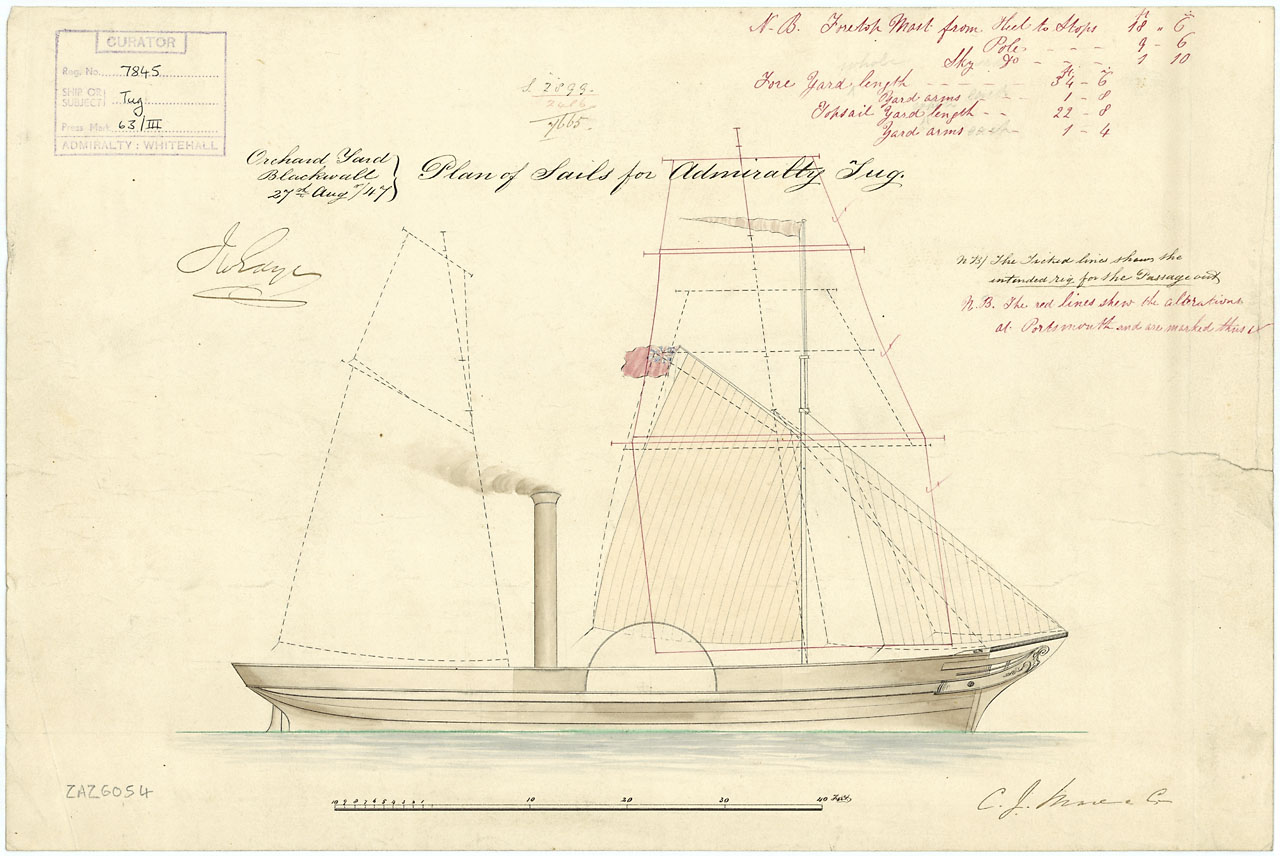 CURATOR
Reg. No. 7845
SHIP OR SUBJECT Tug
Press Mark 63/III
ADMIRALTY: WHITEHALL
N.B. Foretop Mast from Heel to Stops 18 " 6
Pole - - - 9 - 6
Sky Do - - - 1 10
Fore Yard length - - - 34 - 6
Yard arms - - 1 - 8
Topsail Yard length - - 22 - 8
Yard arms each 1 - 4
£ 2899.
2486
7665.
Orchard Yard
Blackwall
27th Augt/47
Plan of Sails for Admiralty Tug.
N B/ The Ticked lines shews the
intended rig for the Passage out
N. B. The red lines shew the alterations
at Portsmouth and are marked thus ✓
10 9 8 7 6 5 4 3 2 1 10 20 30 40 Feet
ZAZ6054
C. J. Mare & Co